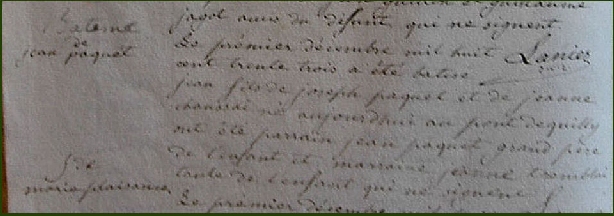 jagot amis du défunt qui ne signent.
Bateme
de
jean paquet
Le prémier décembre mil huit
cent trente trois a été batisé
jean fils de joseph paquet et de jeanne
né aujourdhui au pont de quilly
ont été parrain jean paquet grand père
de l'enfant et marraine jeanne
tante de l'enfant qui ne signent
Sre de
marie plaisance
Le premier décembre